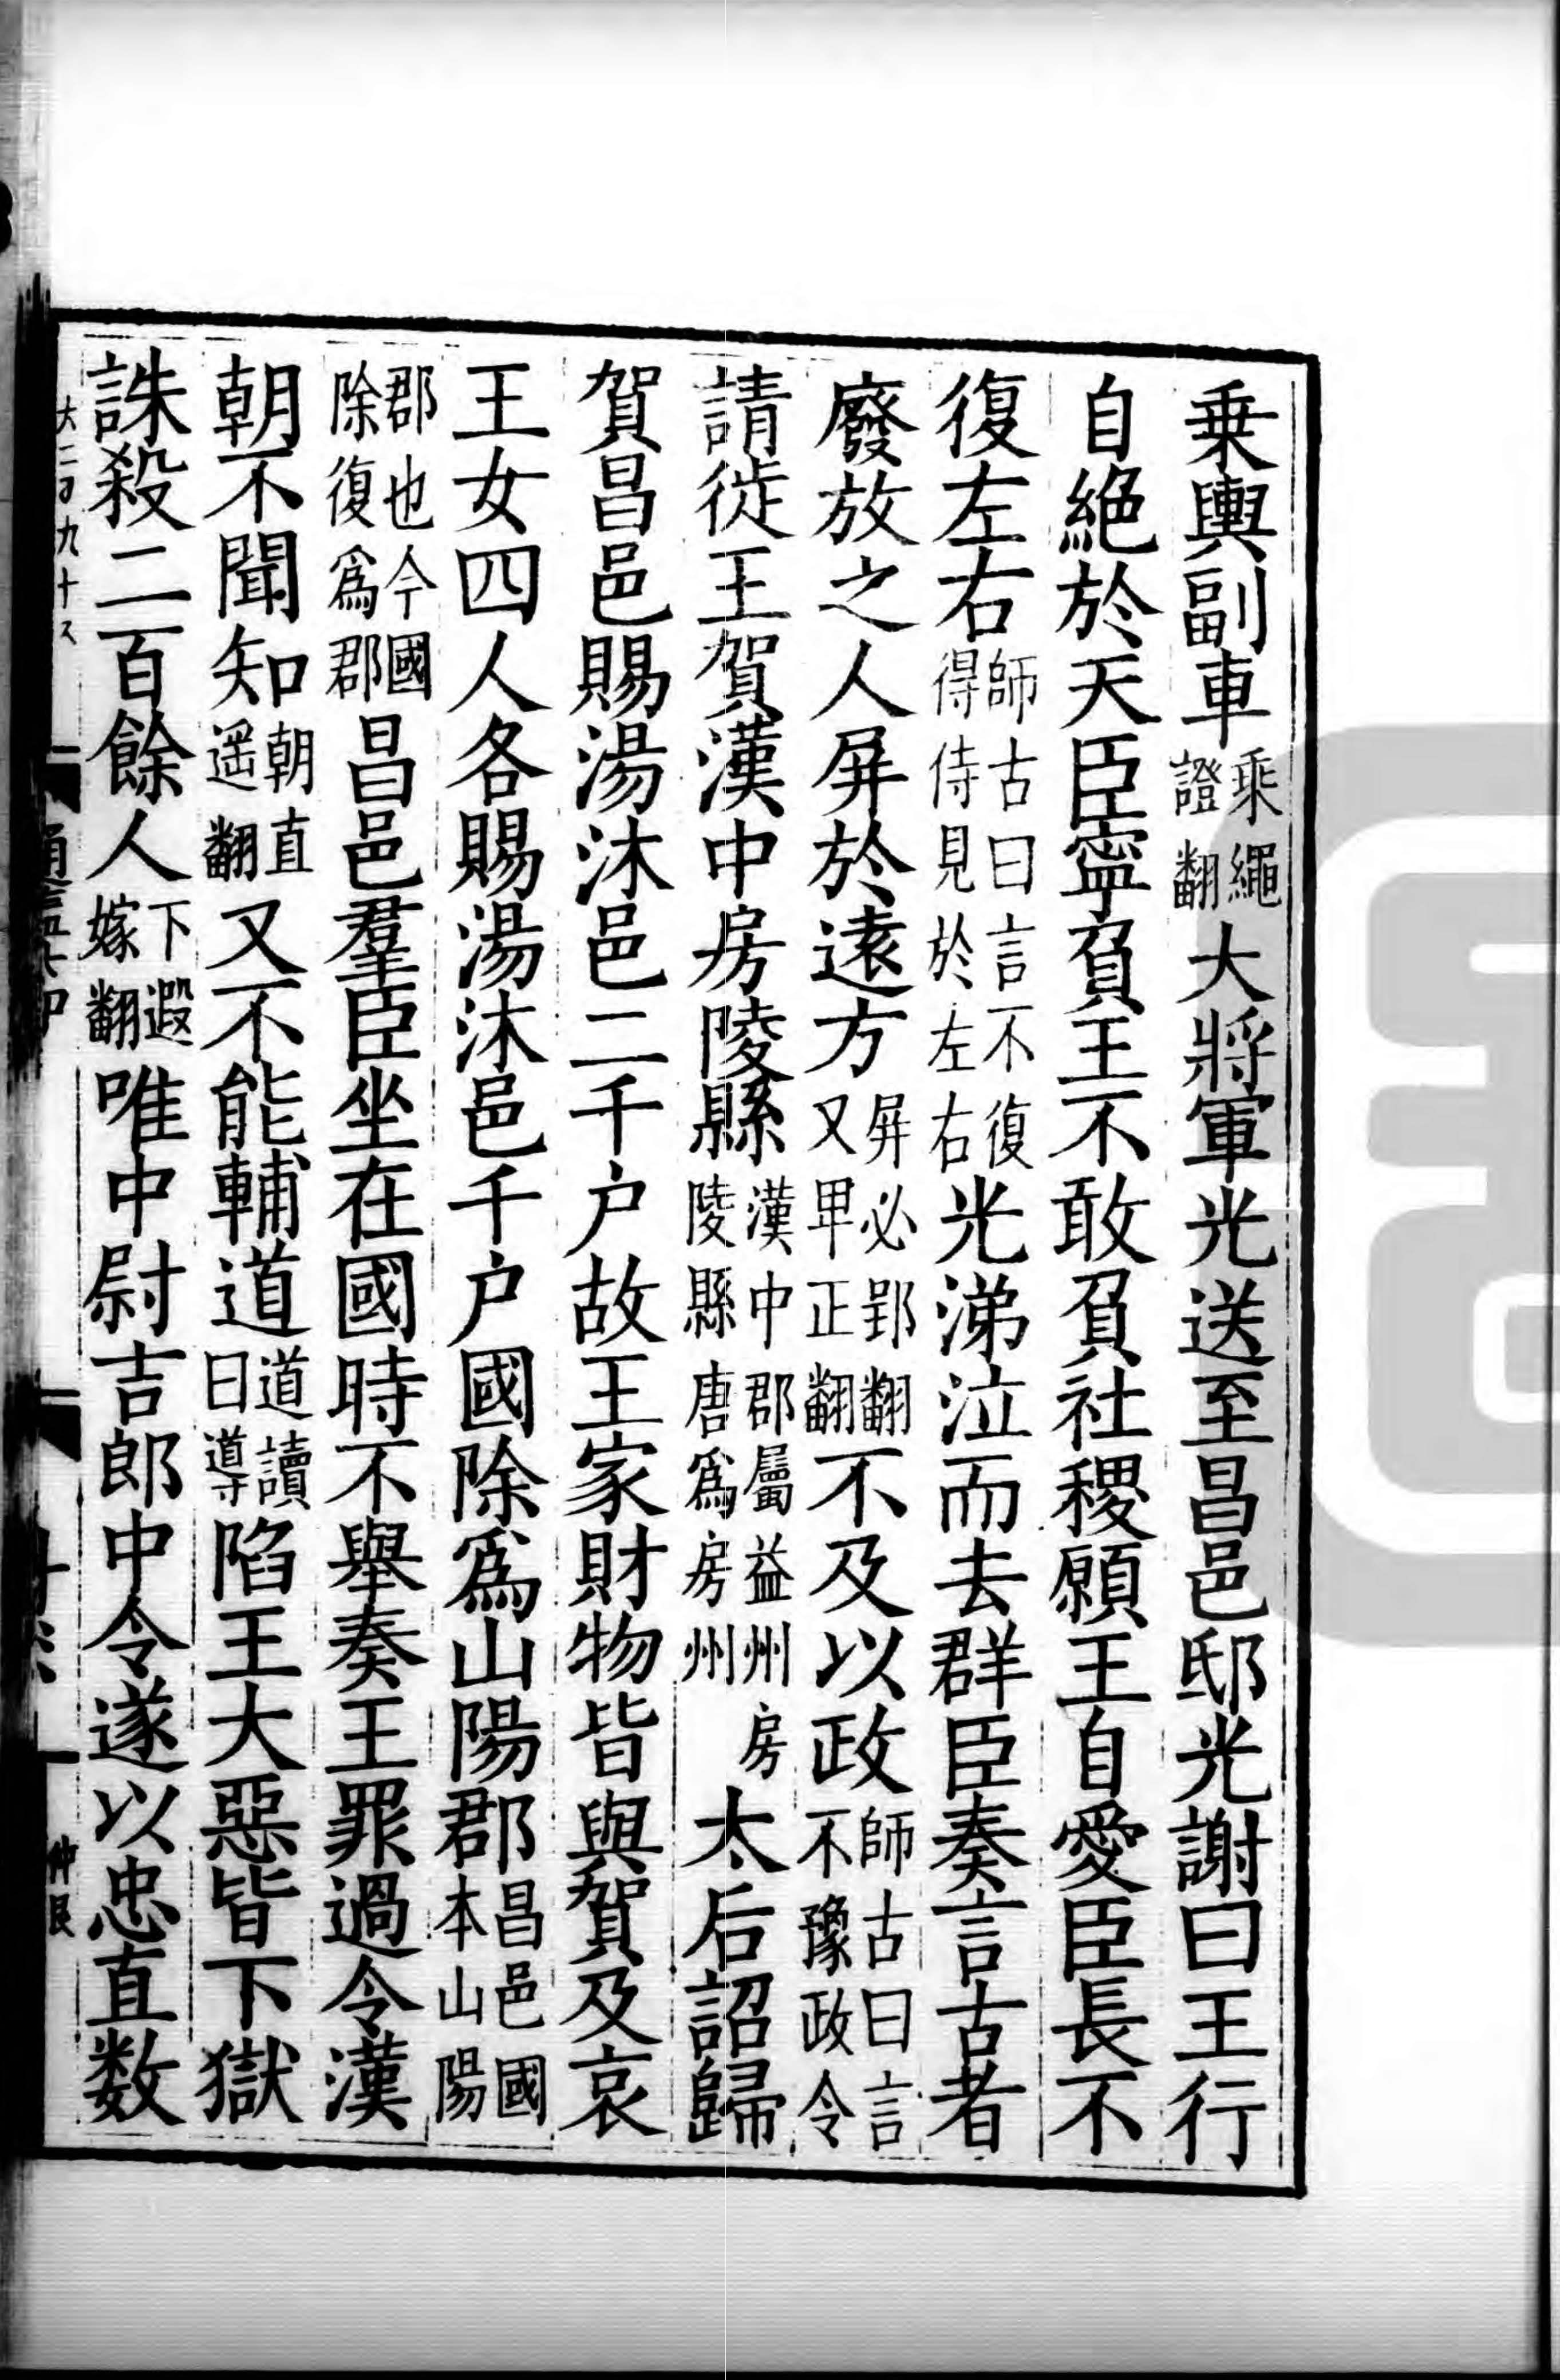 乗輿副車乘繩證翻大將軍光送至昌邑邸光謝曰王行
自絶於天臣寧負王不敢負社稷願王自愛臣長不
復左右師古曰言不復得侍見於左右光涕泣而去群臣奏言古者
廢放之人屏於遠方屏必郢翻又卑正翻不及以政師古曰言不豫政令
請徙王賀漢中房陵縣漢中郡屬益州房陵縣唐爲房州太后詔歸
賀昌邑賜湯沐邑二千户故王家財物皆與賀及哀
王女四人各賜湯沐邑千户國除爲山陽郡昌邑國本山陽
郡也今國除復爲郡昌邑羣臣坐在國時不舉奏王罪過令漢
朝不聞知朝直遥翻又不能輔道道讀曰導陷王大惡皆下獄
誅殺二百餘人下遐嫁翻唯中尉吉郎中令遂以忠直数
仲良